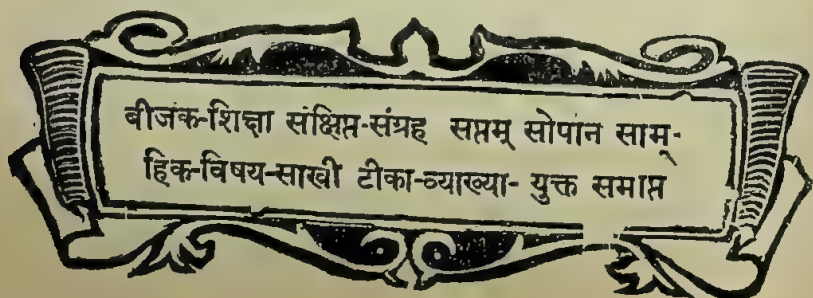 बीजक-शिक्षा संक्षिप्त-संग्रह सप्तम् सोपान सामू-
हिक-विषय-साखी टीका-व्याख्या- युक्त समाप्त